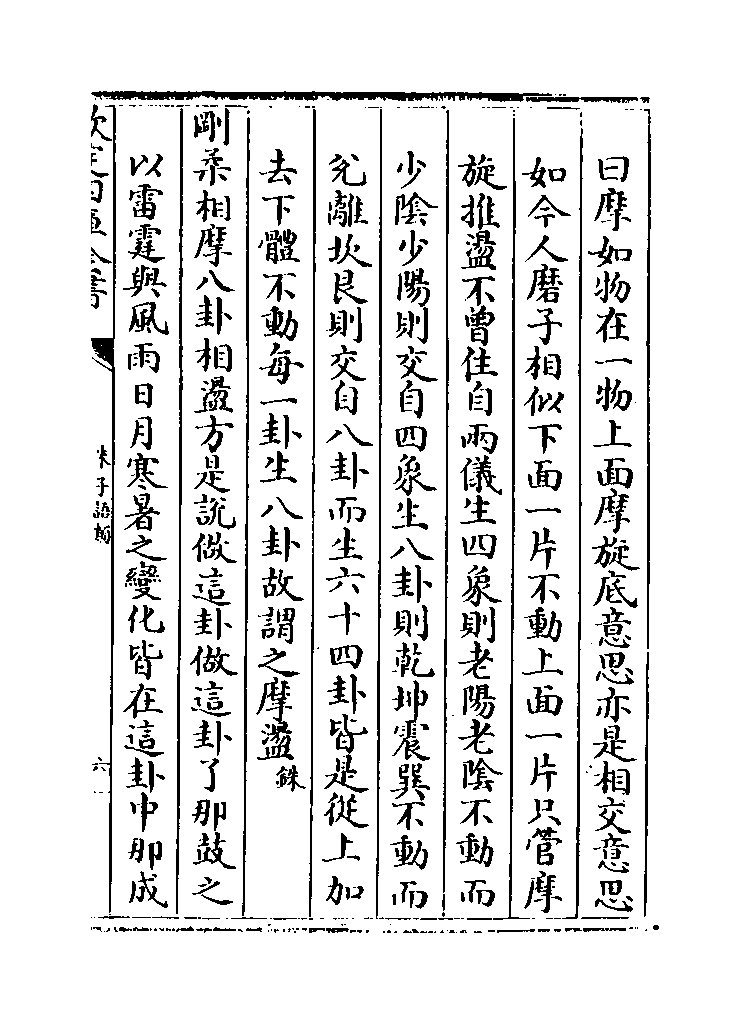 曰摩如物在一物上面摩旋底意思亦是相交意思
如今人磨子相似下面一片不動上面一片只管摩
旋推盪不曾住自兩儀生四象則老陽老陰不動而
少陰少陽則交自四象生八卦則乾坤震巽不動而
兊離坎艮則交自八卦而生六十四卦皆是從上加
去下體不動每一卦生八卦故謂之摩盪銖
剛柔相摩八卦相盪方是說做這卦做這卦了那鼓之
以雷霆與風雨日月寒暑之變化皆在這卦中那成
欽定四庫全書
朱子語類
六